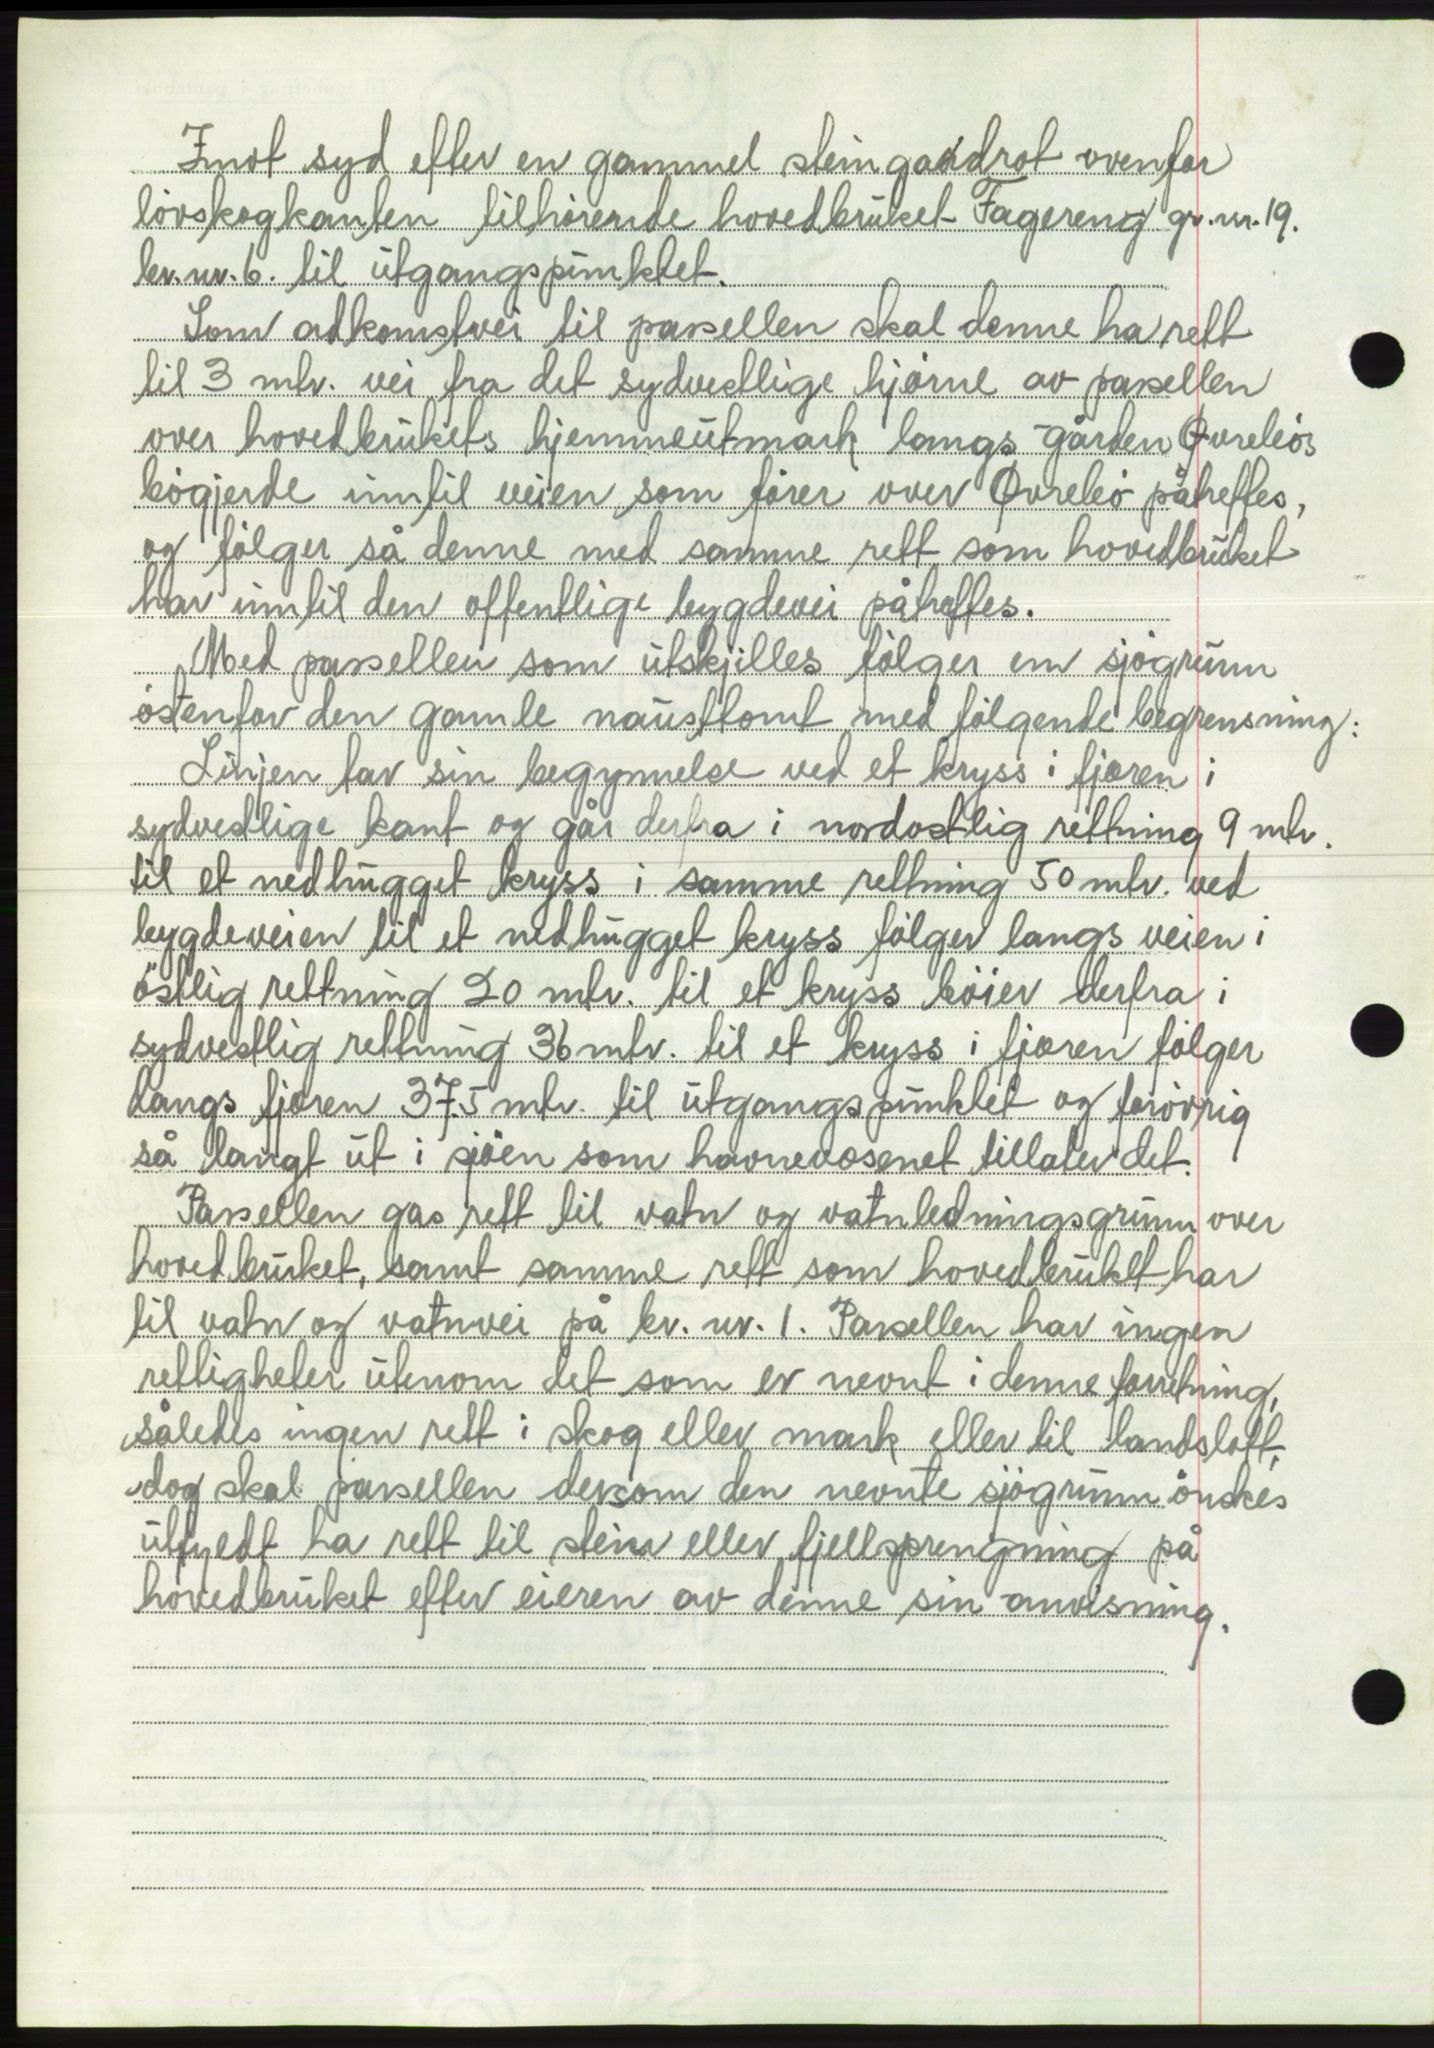 Imot syd efter en gammel steingardrot ovenfor
løvskogkanten tilhørende hovedbruket Fagereng gr.nr.19.
br.nr.6. til utgangspunktet.
Som adkomstvei til parsellen skal denne ha rett
til 3 mtr. vei fra det sydvestlige hjørne av parsellen
over hovedbrukets hjemmeutmark langs gården Øvrebös
bögjerde inntil veien som förer over Øvrebö påtreffes,
og fölger så denne med samme rett som hovedbruket
har inntil den offentlige bygdevei påtreffes.
Med parsellen som utskjilles fölger en sjögrunn
östenfor den gamle nausttomt med fölgende begrensning:
Linjen tar sin begynnelse ved et kryss i fjæren i
sydvestlige kant og går derfra i nordostlig rettning 9 mtr.
til et nedhugget kryss i samme rettning 50 mtr. ved
bygdeveien til et nedhugget kryss fölger langs veien i
östlig rettning 20 mtr. til et kryss böier derfra i
sydvestlig rettning 36 mtr. til et kryss i fjæren fölger
langs fjæren 37.5 mtr. til utgangspunktet og forövrig
så langt ut i sjöen som havnevesenet tillater det.
Parsellen gas rett til vatn og vatnledningsgrunn over
hovedbruket, samt samme rett som hovedbruket har
til vatn og vatnvei på br. nr. 1. Parsellen har ingen
rettigheter utenom det som er nevnt i denne forretning,
således ingen rett i skog eller mark eller til landslott,
dog skal parsellen dersom den nevnte sjögrunn önskes
utfyldt ha rett til stein eller fjellsprengning på
hovedbruket efter eieren av denne sin anvisning.